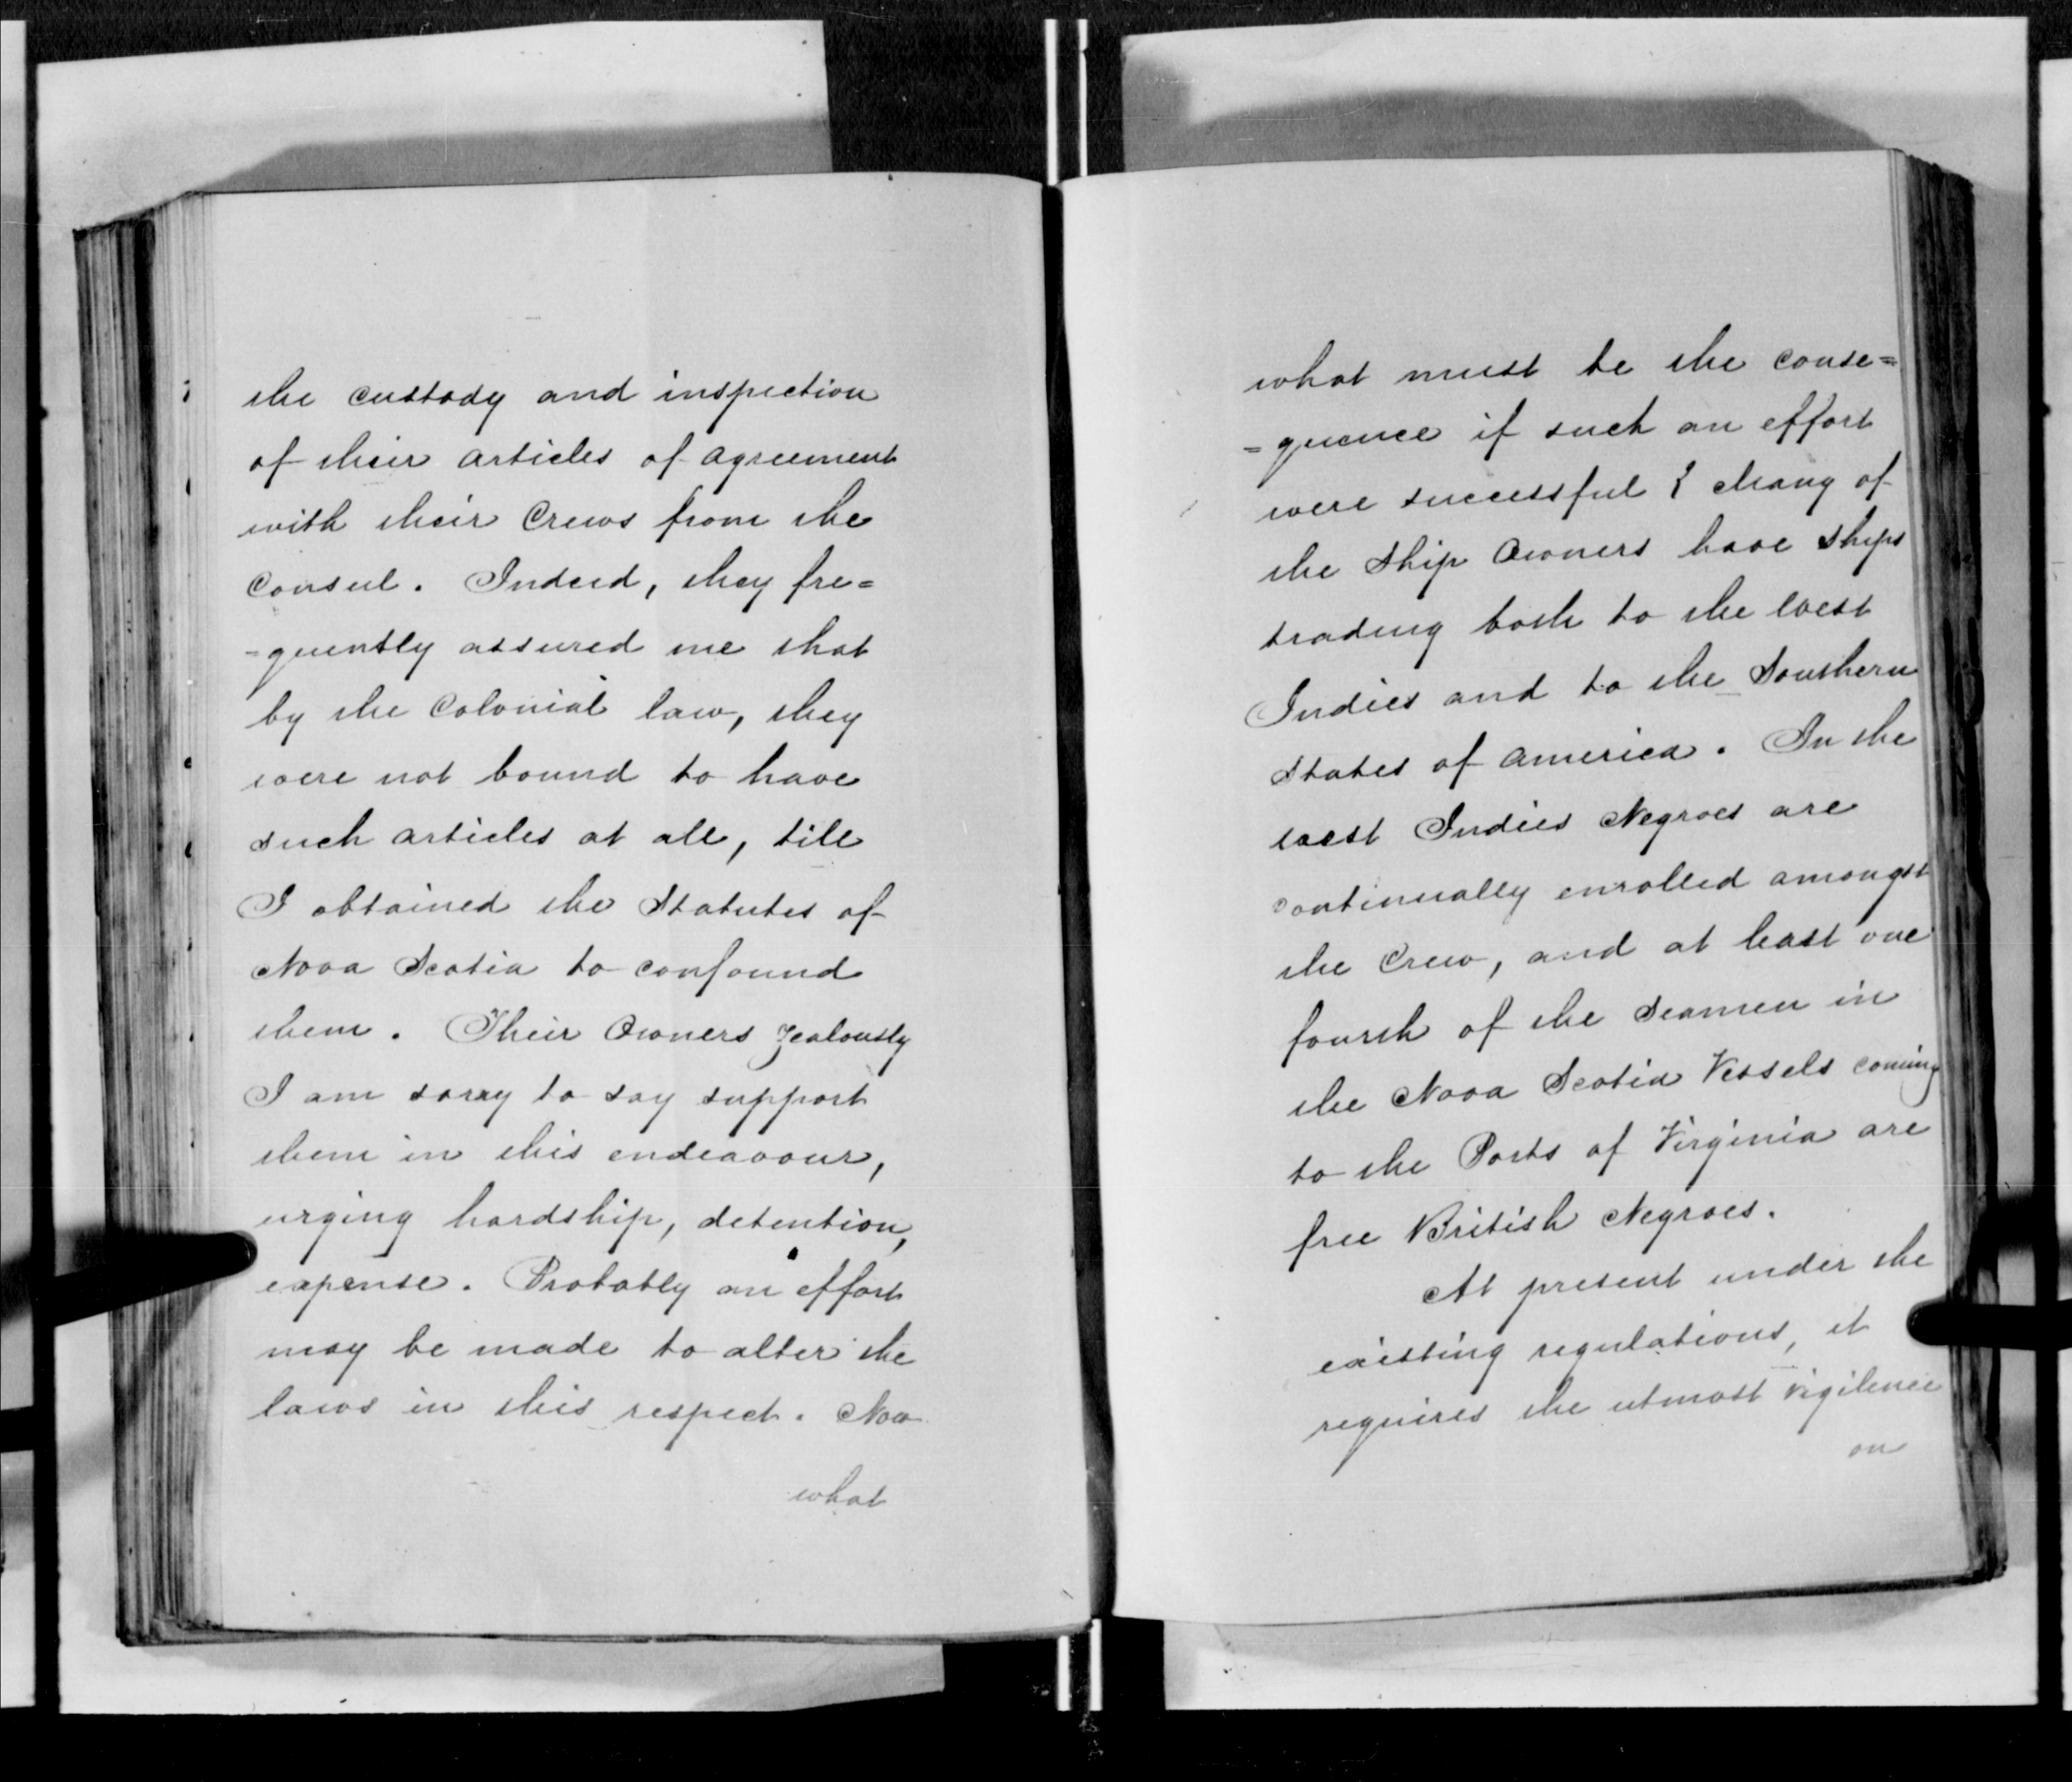 the custody and inspection
of their articles of agreement
with their Crews from the
Consul. Indeed, they fre=
=quently assured me that
by the Colonial law, they
were not bound to have
such articles at all, till
I obtained the Statutes of
Nova Scotia to confound
them. Their Owners Zealously
I am sorry to say support
them in this endeavour,
urging hardship, detention,
expense. Probably an effort
may be made to alter the
laws in this respect. Now
what
what must be the conse=
=quence if such an effort
were successful? Many of
the Ship Owners have Ships
trading both to the West
Indies and to the Southern
States of America. In the
West Indies Negroes are
continually enrolled amongst
the Crew, and at least one
fourth of the Seamen in
the Nova Scotia Vessels coming
to the Ports of Virginia are
free British Negroes.
At present under the
existing regulations, it
requires the utmost vigilence
on